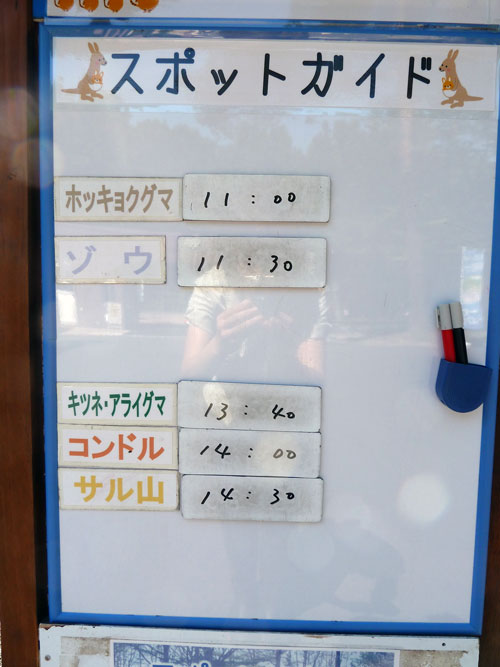 スポットガイド
ホッキョクグマ 11:00
ゾウ 11:30
キツネ・アライグマ 13:40
コンドル 14:00
サル山 14:30